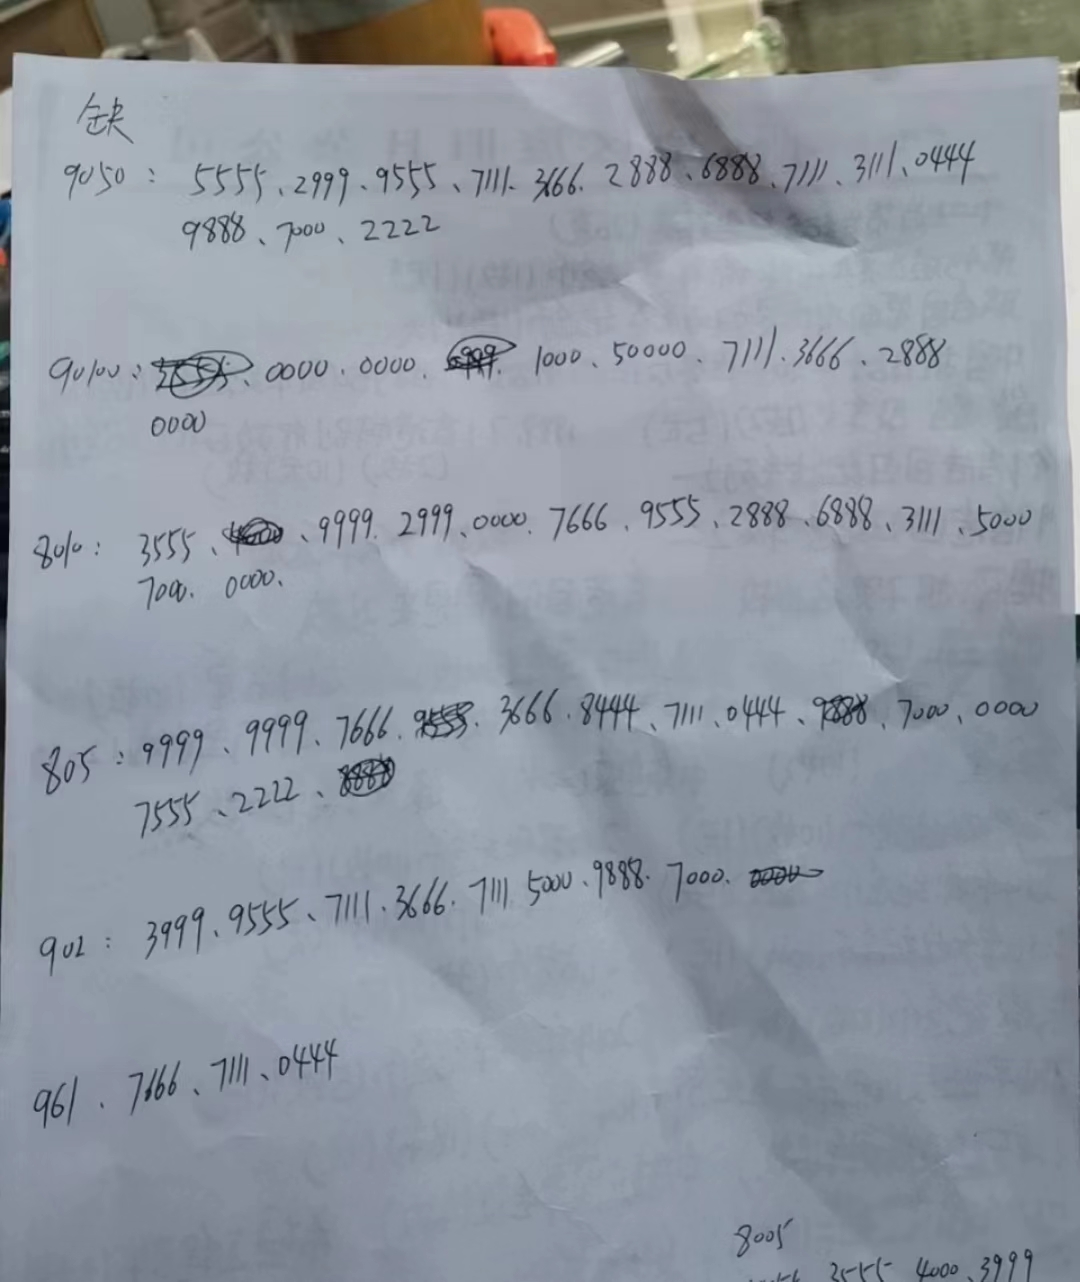 缺
9050： 5555、2999、9555、7111、3666、2888、6888、7111、3111、0444
9888、7000、2222
90100：0000、0000、1000、50000、7111、3666、2888
0000
8010：3555、9999、2999、0000、7666、9555、2888、6888、3111、5000
7000、0000、
805：9999、9999、7666、3666、8444、7111、0444、7000、0000
7555、2222、
902：3999、9555、7111、3666、7111 5000、9888、7000、
961、7666、7111、0444
8005
3555 4000、3999